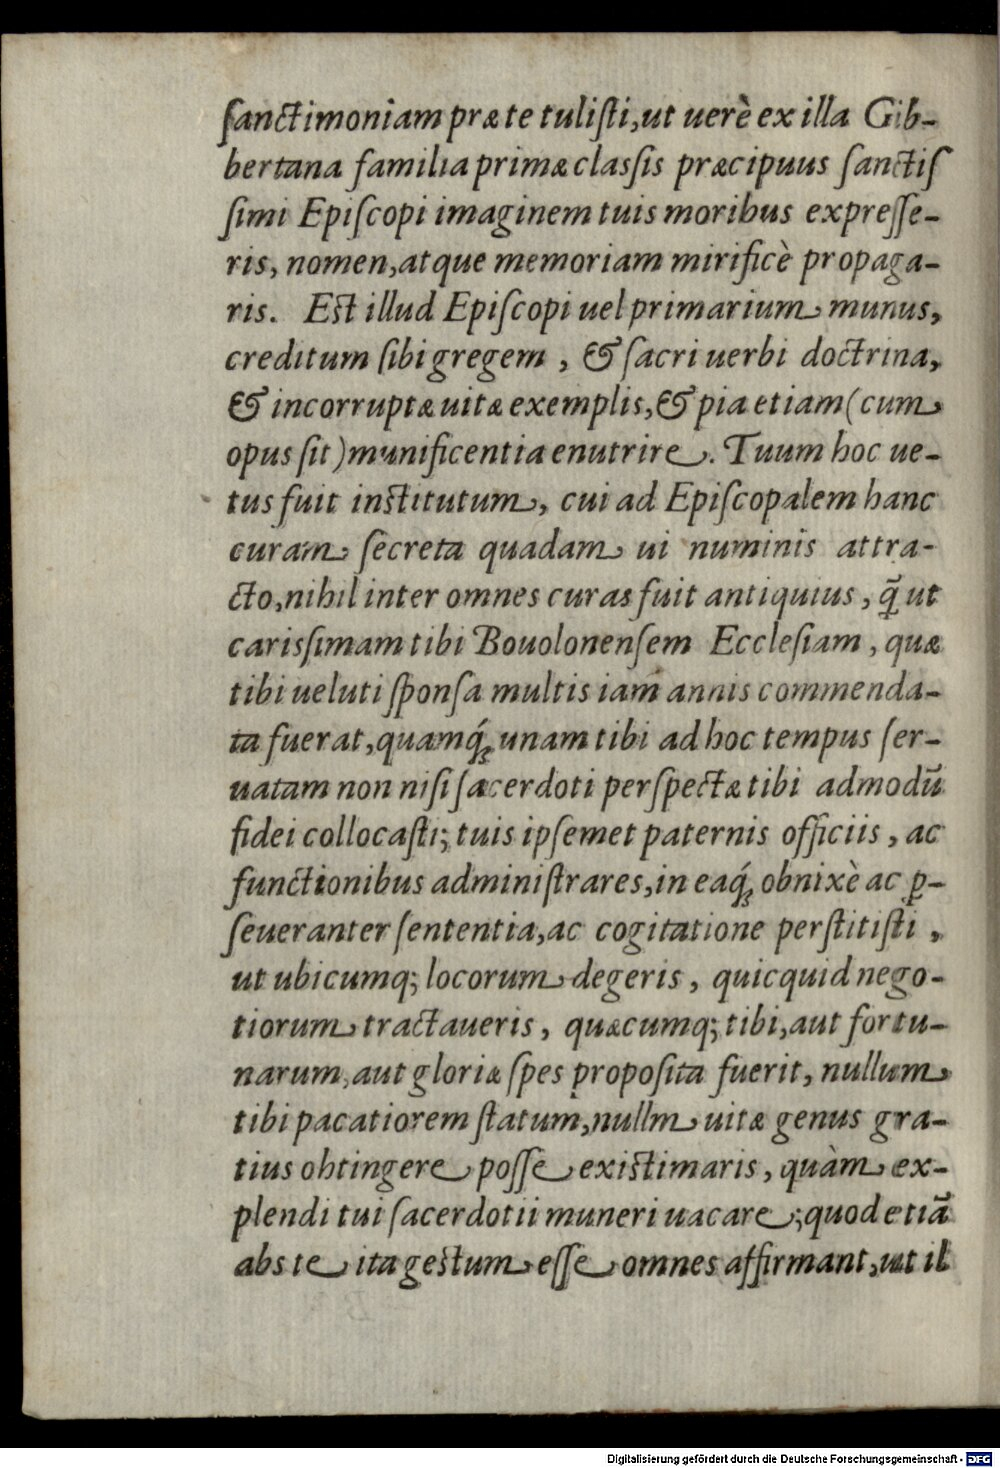 ſanctimoniam præ te tuliſti, ut uerè ex illa Gib-
bertana familia primæ claſsis præcipuus ſanctiſ
ſimi Epiſcopi imaginem tuis moribus expreſſe-
ris, nomen, atque memoriam mirificè propaga-
ris. Est illud Epiſcopi uel primarium munus,
creditum ſibi gregem, & ſacri uerbi doctrina,
& incorruptæ uitæ exemplis, & pia etiam (cum
opus ſit) munificentia enutrire. Tuum hoc ue-
tus fuit institutum, cui ad Epiſcopalem hanc
curam ſecreta quadam ui numinis attra-
cto, nihil inter omnes curas fuit antiquius, q̃ ut
carisſimam tibi Bouolonenſem Eccleſiam, quæ
tibi ueluti ſponſa multis iam annis commenda-
ta fuerat, quamq́; unam tibi ad hoc tempus ſer-
uatam non niſi ſacerdoti perſpectæ tibi admodũ
fidei collocaſti; tuis ipſemet paternis officiis, ac
functionibus adminiſtrares, in eaq́; obnixè ac ꝑ-
ſeueranter ſententia, ac cogitatione perſtitiſti,
ut ubicumq; locorum degeris, quicquid nego-
tiorum tractaueris, quæcumq; tibi, aut fortu-
narum, aut gloriæ ſpes propoſita fuerit, nullum
tibi pacatiorem ſtatum, nullm uitæ genus gra-
tius ohtingere poſſe existimaris, quàm ex-
plendi tui ſacerdotii muneri uacare; quod etiã
abs te ita gestum eſſe omnes affirmant, ut il
Digitalisierung gefördert durch die Deutsche Forschungsgemeinschaft - DFG